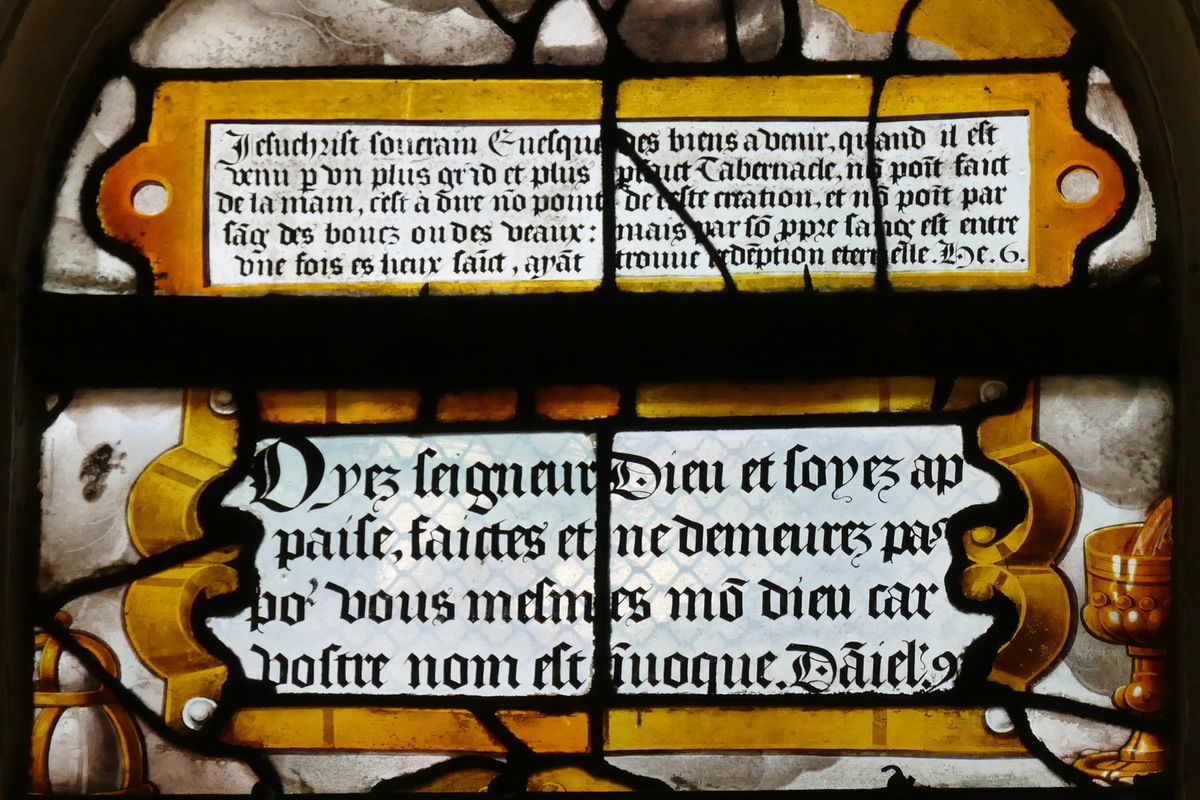 Jesuchrist souverain Euesque des biens a venir, quand il est
venu p̄ vn plus grãd et plus pfaict Tabernacle, nõ poĩt faict
de la main, c'est a dire nõ point de ceste creation, et nõ poĩt par
sãg des boucz ou des veaux: mais par sõ ppre sang est entre
vne fois es lieux saĩct, ayãt trouue redẽption eternelle. He. 6.
Oyez seigneur Dieu et soyez ap
paise, faictes et ne demeurez pas
po' vous mesmes mõ dieu car
vostre nom est ĩuoque. Dãiel. 9